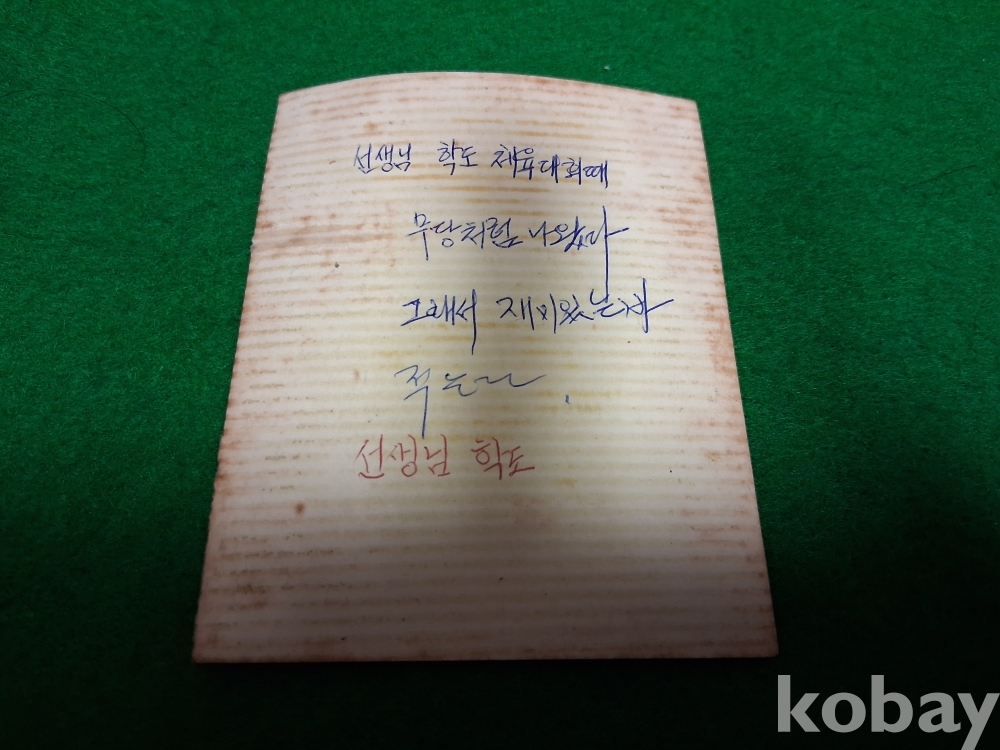 선생님 학도 체육대회때
무당처럼 나왔다
그래서 재미있는바
적는다.
선생님 학도
kobay